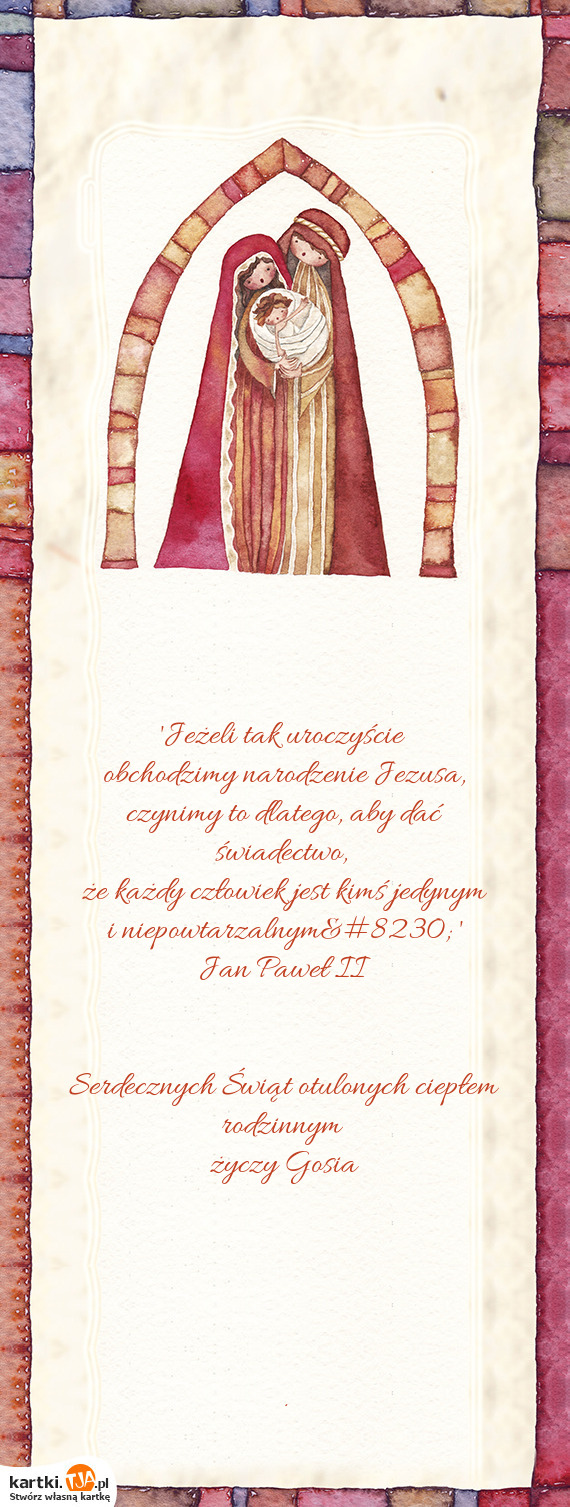 'Jeżeli tak uroczyście
obchodzimy narodzenie Jezusa,
czynimy to dlatego, aby dać
świadectwo,
że każdy człowiek jest kimś jedynym
i niepowtarzalnym&#8230;'
Jan Paweł II
Serdecznych Świąt otulonych ciepłem
rodzinnym
życzy Gosia
.
kartki.TJA.pl
Stwórz własną kartkę